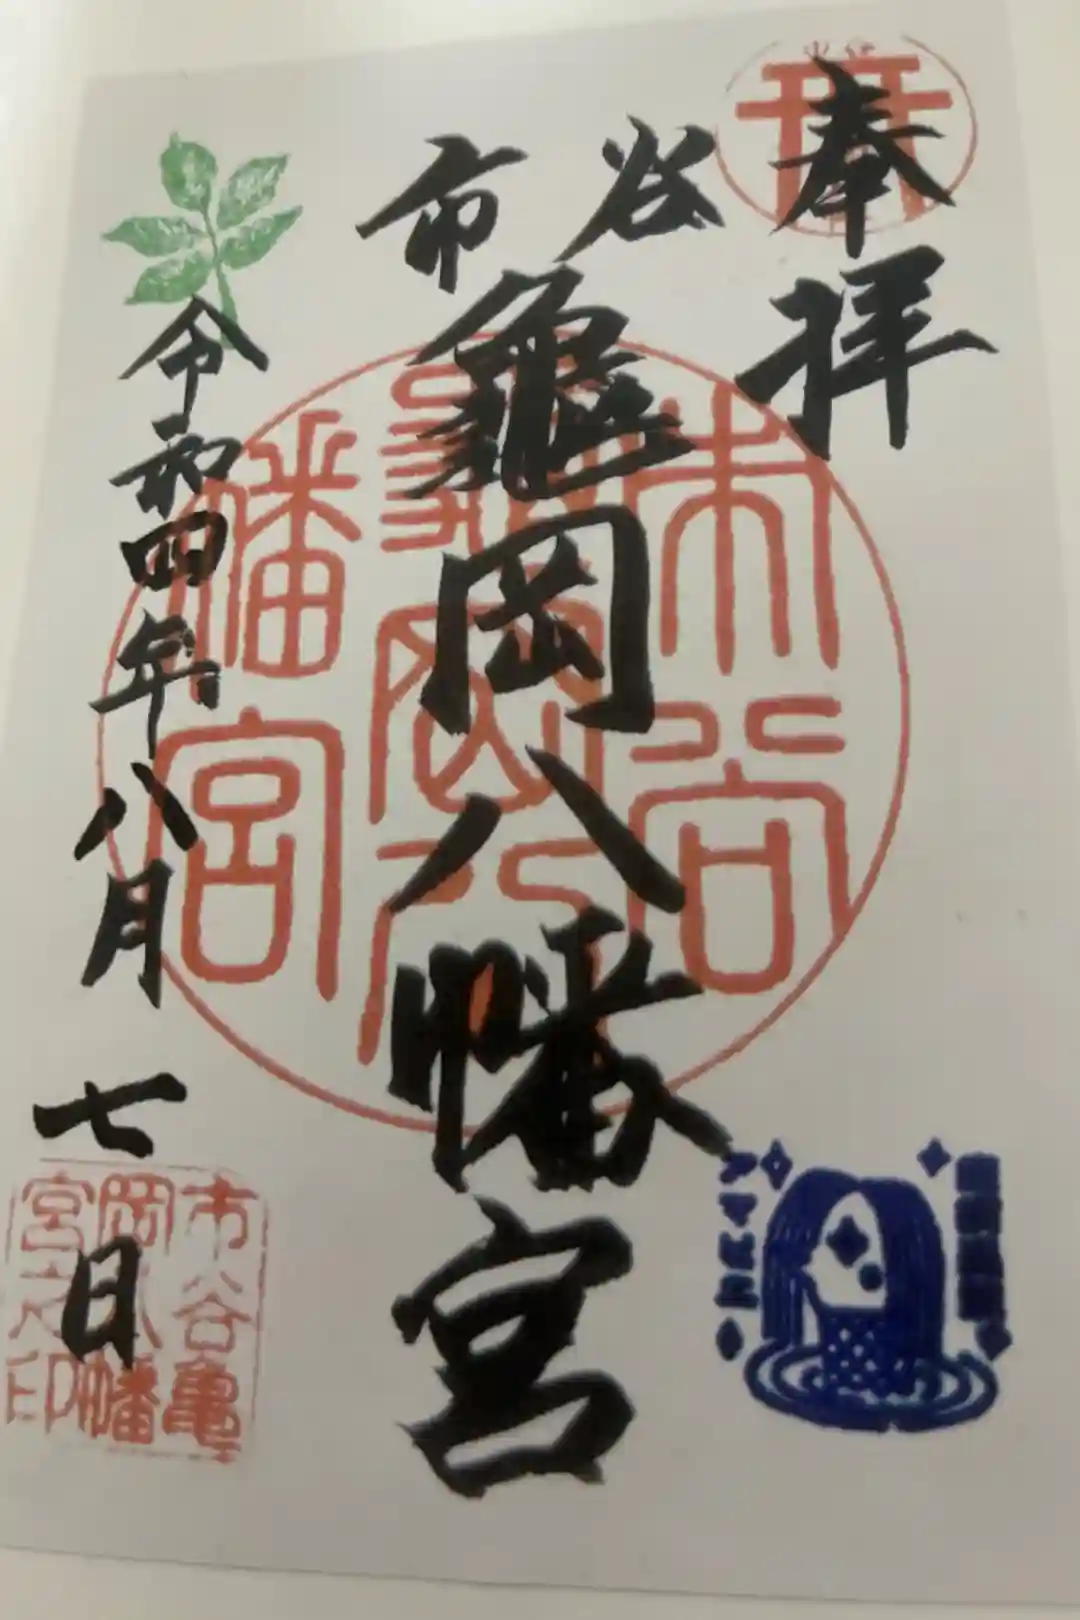 奉拝
市谷
亀岡八幡宮
令和四年八月七日
市谷亀岡八幡宮
市谷亀
岡八幡
宮之印